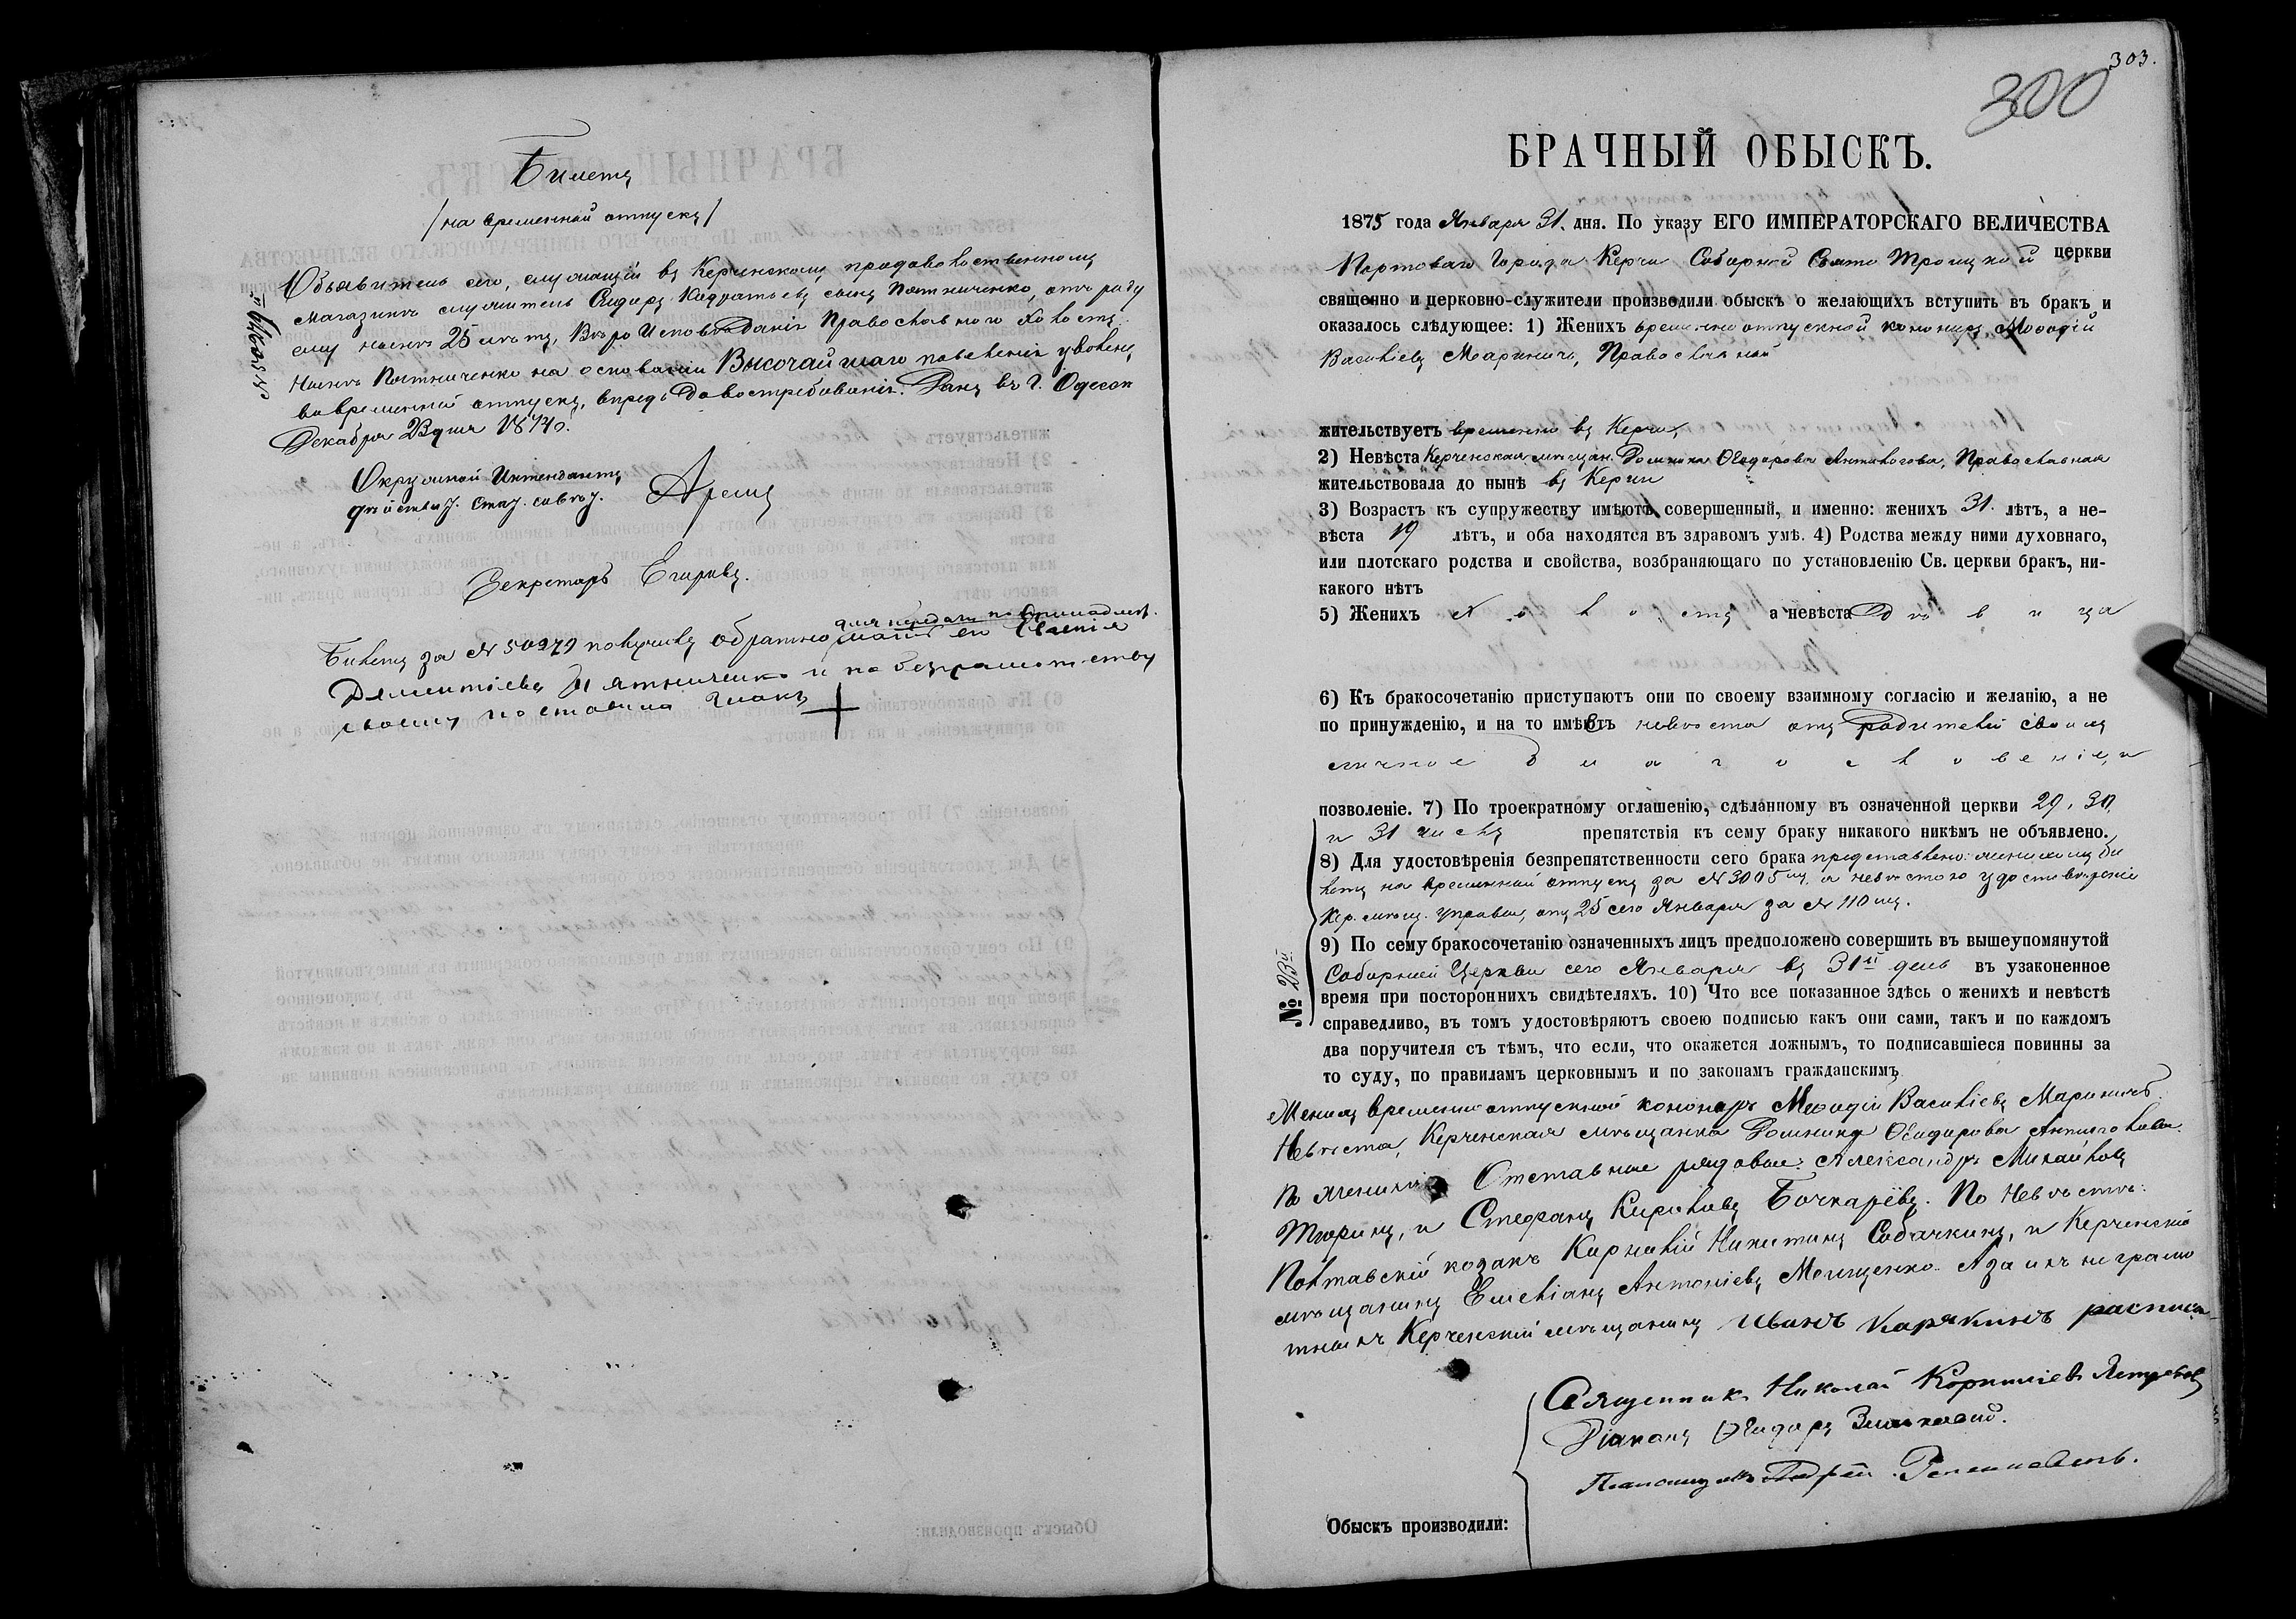 Билетъ
/на временной отпускъ/
Объявитель сего, служащій въ Керчинскомъ продовольственномъ
магазинѣ служитель Сидоръ сынъ Пятниченко, отъ роду
ему нынѣ 25 лѣтъ, Вѣроисповѣданія Православнаго Холостъ
Нынѣ Пятниченко на основаніи Высочайшаго повеленія уволенъ
во временной отпускъ, впредь до востребованія. Данъ въ Г. Одессѣ
Декабря 23 дня
Окружной Интендантъ
дѣйствит. стат. совѣт.
Секретарь Егоровъ.
для передачи по принадлеж.
Билетъ за № 50979 получилъ обратно
Дементіевъ Пятниченко и по безграмотству
своему поставила знакъ +
303.
300
БРАЧНЫЙ ОБЫСКЪ.
1875 года Января 31. дня. По указу ЕГО ИМПЕРАТОРСКАГО ВЕЛИЧЕСТВА
Портоваго Города Керчи Соборной Свято Троицкой церкви
священно и церковно-служители производили обыскъ о желающихъ вступить въ бракъ и
оказалось слѣдующее: 1) Женихъ временно отпускной канониръ Мефодій
Васильевъ Мариничъ, Православный
жительствуетъ временно въ Керчи,
2) Невѣста Керченская мѣщан. Домника Ѳеодорова Православная
жительствовала до нынѣ въ Керчи
3) Возрастъ къ супружеству имѣютъ совершенный, и именно: женихъ 31. лѣтъ, а не-
вѣста 19 лѣтъ, и оба находятся въ здравомъ умѣ. 4) Родства между ними духовнаго,
или плотскаго родства и свойства, возбраняющаго по установленію Св. церкви бракъ, ни-
какого нѣтъ
5) Женихъ Холостъ а невѣста Дѣвица
6) Къ бракосочетанію приступаютъ они по своему взаимному согласію и желанію, а не
по принужденію, и на то имѣетъ невѣста отъ родителей своихъ
личное благословеніе, и
позволеніе. 7) По троекратному оглашенію, сдѣланному въ означенной церкви 29, 30,
и 31 числъ препятствія къ сему браку никакого никѣмъ не объявлено.
8) Для удостовѣренія безпрепятственности сего брака представлено: женихомъ би
летъ на временный отпускъ за № 3005мъ, а невѣстою удостовѣреніе
Кер. мѣщ. управы, отъ 25 сего Января за № 110мъ.
№ 23й
9) По сему бракосочетанію означенныхъ лицъ предположено совершить въ вышеупомянутой
Соборной Церкви сего Января въ 31й день въ узаконенное
время при постороннихъ свидѣтеляхъ. 10) Что все показанное здѣсь о женихѣ и невѣстѣ
справедливо, въ томъ удостовѣряютъ своею подписью какъ они сами, такъ и по каждомъ
два поручителя съ тѣмъ, что если, что окажется ложнымъ, то подписавшіеся повинны за
то суду, по правиламъ церковнымъ и по законамъ гражданскимъ
Женихъ временно отпускной канониръ Мефодій Васильевъ Мариничъ.
Невѣста, Керченская мѣщанка Домника Ѳеодорова
По женихѣ Отставные рядовые: Александръ Михайловъ
Тюринъ, и Стефанъ Кириловъ Бочкарёвъ. По Невѣстѣ:
Полтавскій козакъ Корнилій Никитинъ Собачкинъ, и Керченскій
мѣщанинъ Емеліанъ Антоніевъ Мощенко. А за ихъ неграмо
тныхъ Керченскій мѣщанинъ Иванъ Карякинъ расписа
Священникъ Николай
Діаконъ Ѳеодоръ
Обыскъ производили: